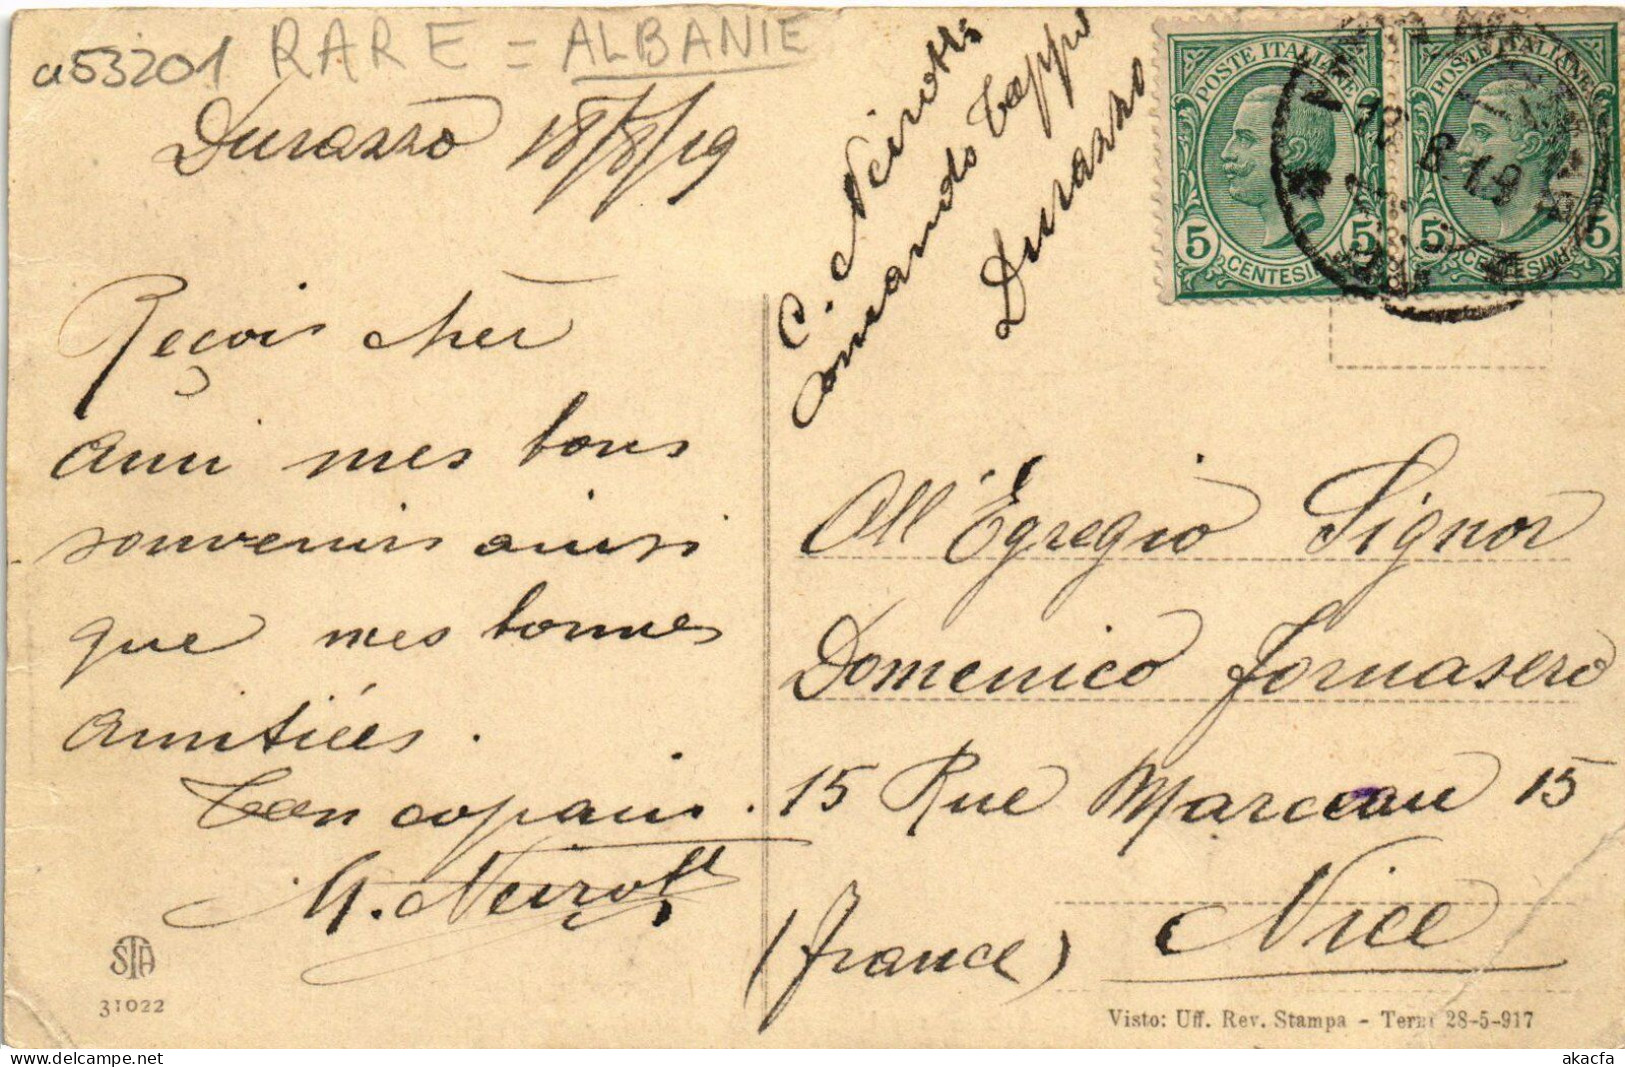 a53201 RARE = ALBANIE
Durazzo 18/8/19
C. Neirotti
Comando Tappa
Durazzo
POSTE ITALIANE
5 CENTESIMI 5
POSTE ITALIANE
5 CENTESIMI 5
8.19
Reçois cher
ami mes bons
souvenirs ainsi
que mes bonnes
amitiées.
Ton copain.
Neirotti
All'Egregio Signor
Domenico Fornasero
15 Rue Marceau 15
Nice
(France)
STA
31022
Visto: Uff. Rev. Stampa - Terni 28-5-917
akacfa.com